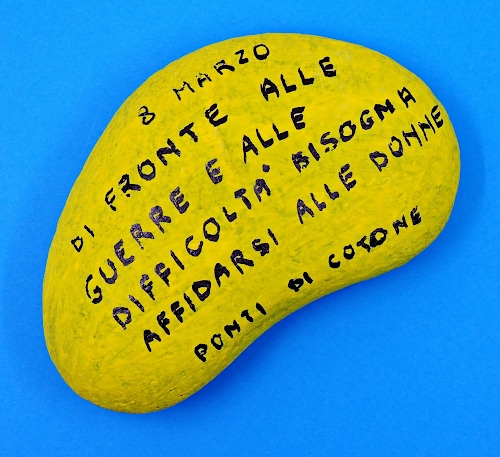 8 MARZO
DI FRONTE ALLE
GUERRE E ALLE
DIFFICOLTA' BISOGNA
AFFIDARSI ALLE DONNE
PONTI DI COTONE